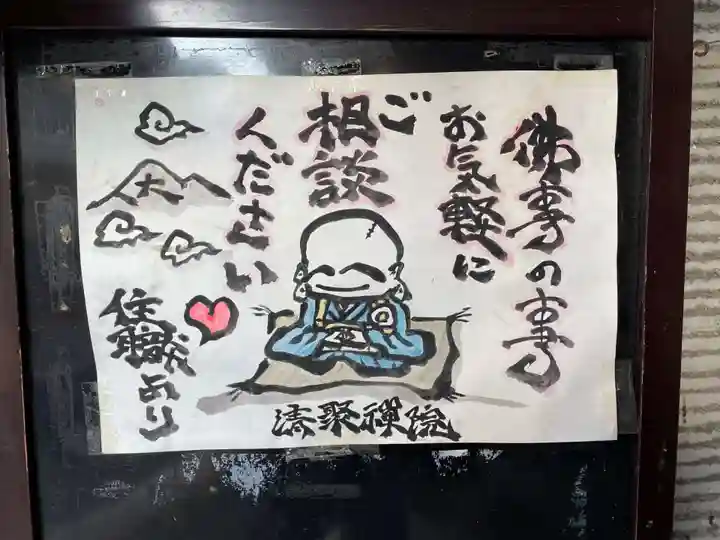 佛事の事
お気軽に
ご相談
ください
大
住職より
清聚禅院